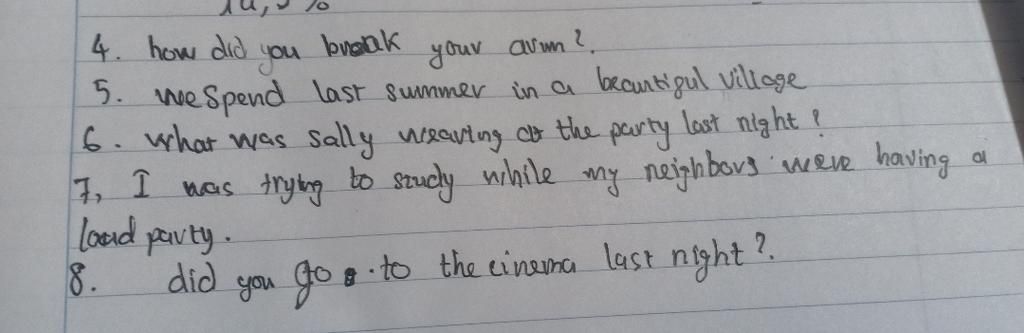 10,5%
4. how did you break your arm?.
5. we spend last summer in a beautigul village
6. what was sally wreaving at the party last night?
7, I was trying to study while my neighbors were having a
loud party.
8. did you go to the cinema last night?.